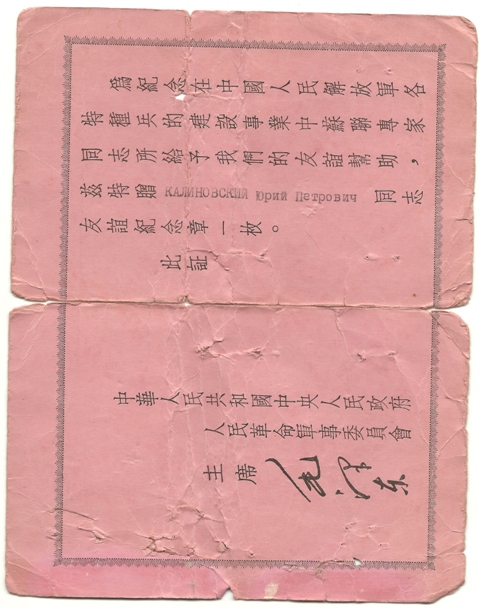 為紀念在中國人民解放軍各
特種兵的建設事業中蘇聯專家
同志所給予我們的友誼幫助，
茲特贈 КАЛИНОВСКИЙ Юрий Петрович 同志
友誼紀念章一枚。
此証
中華人民共和國中央人民政府
人民革命軍事委員會
主席 毛泽东